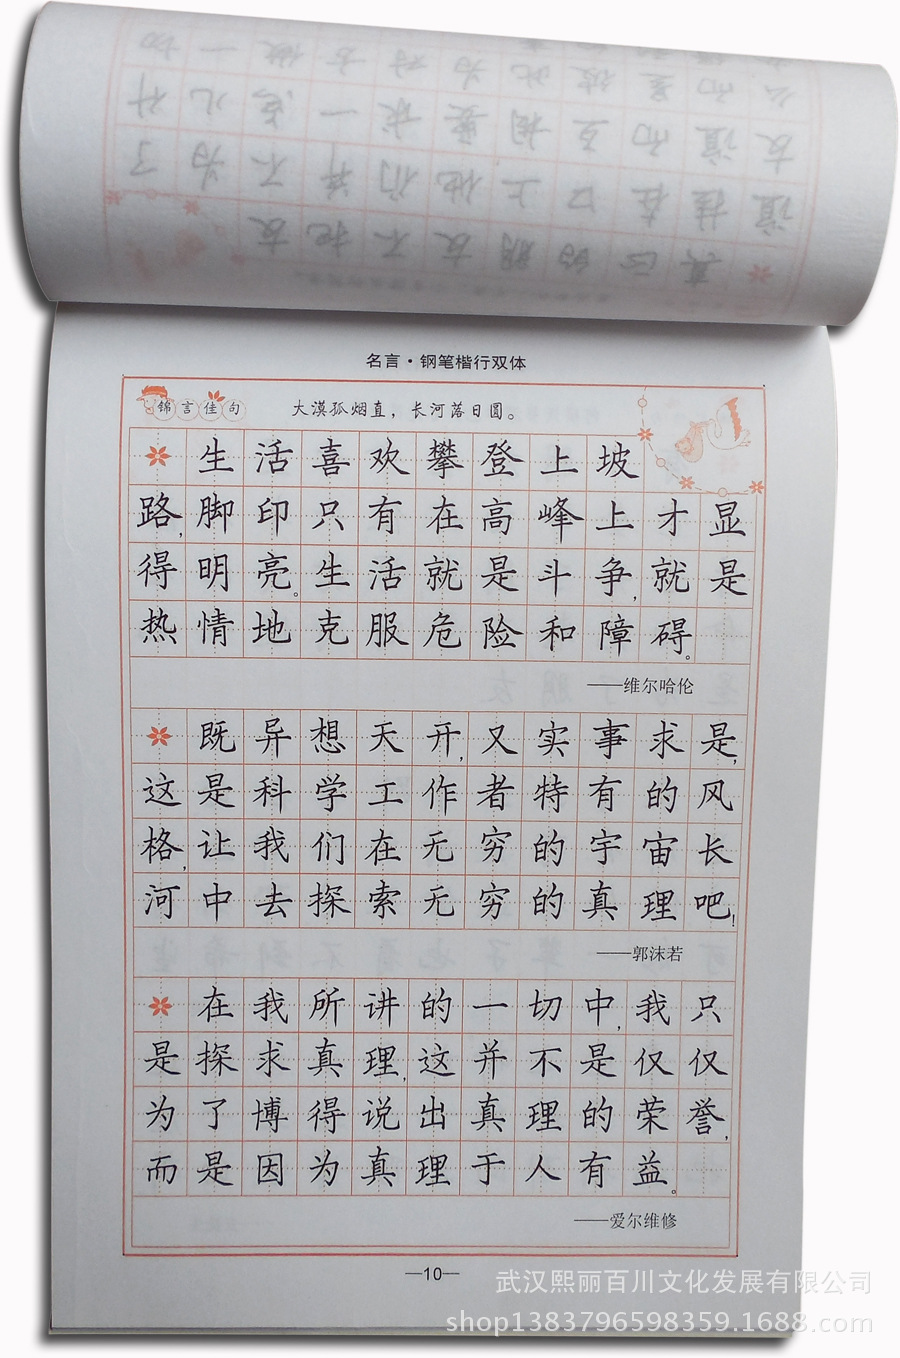 名言·钢笔楷行双体
锦言佳句
大漠孤烟直，长河落日圆。
生活喜欢攀登上坡
路，脚印只有在高峰上才显
得明亮。生活就是斗争，就是
热情地克服危险和障碍。
——维尔哈伦
既异想天开，又实事求是，
这是科学工作者特有的风
格，让我们在无穷的宇宙长
河中去探索无穷的真理吧！
——郭沫若
在我所讲的一切中，我只
是探求真理，这并不是仅仅
为了博得说出真理的荣誉，
而是因为真理于人有益。
——爱尔维修
—10—
武汉熙丽百川文化发展有限公司
shop1383796598359.1688.com